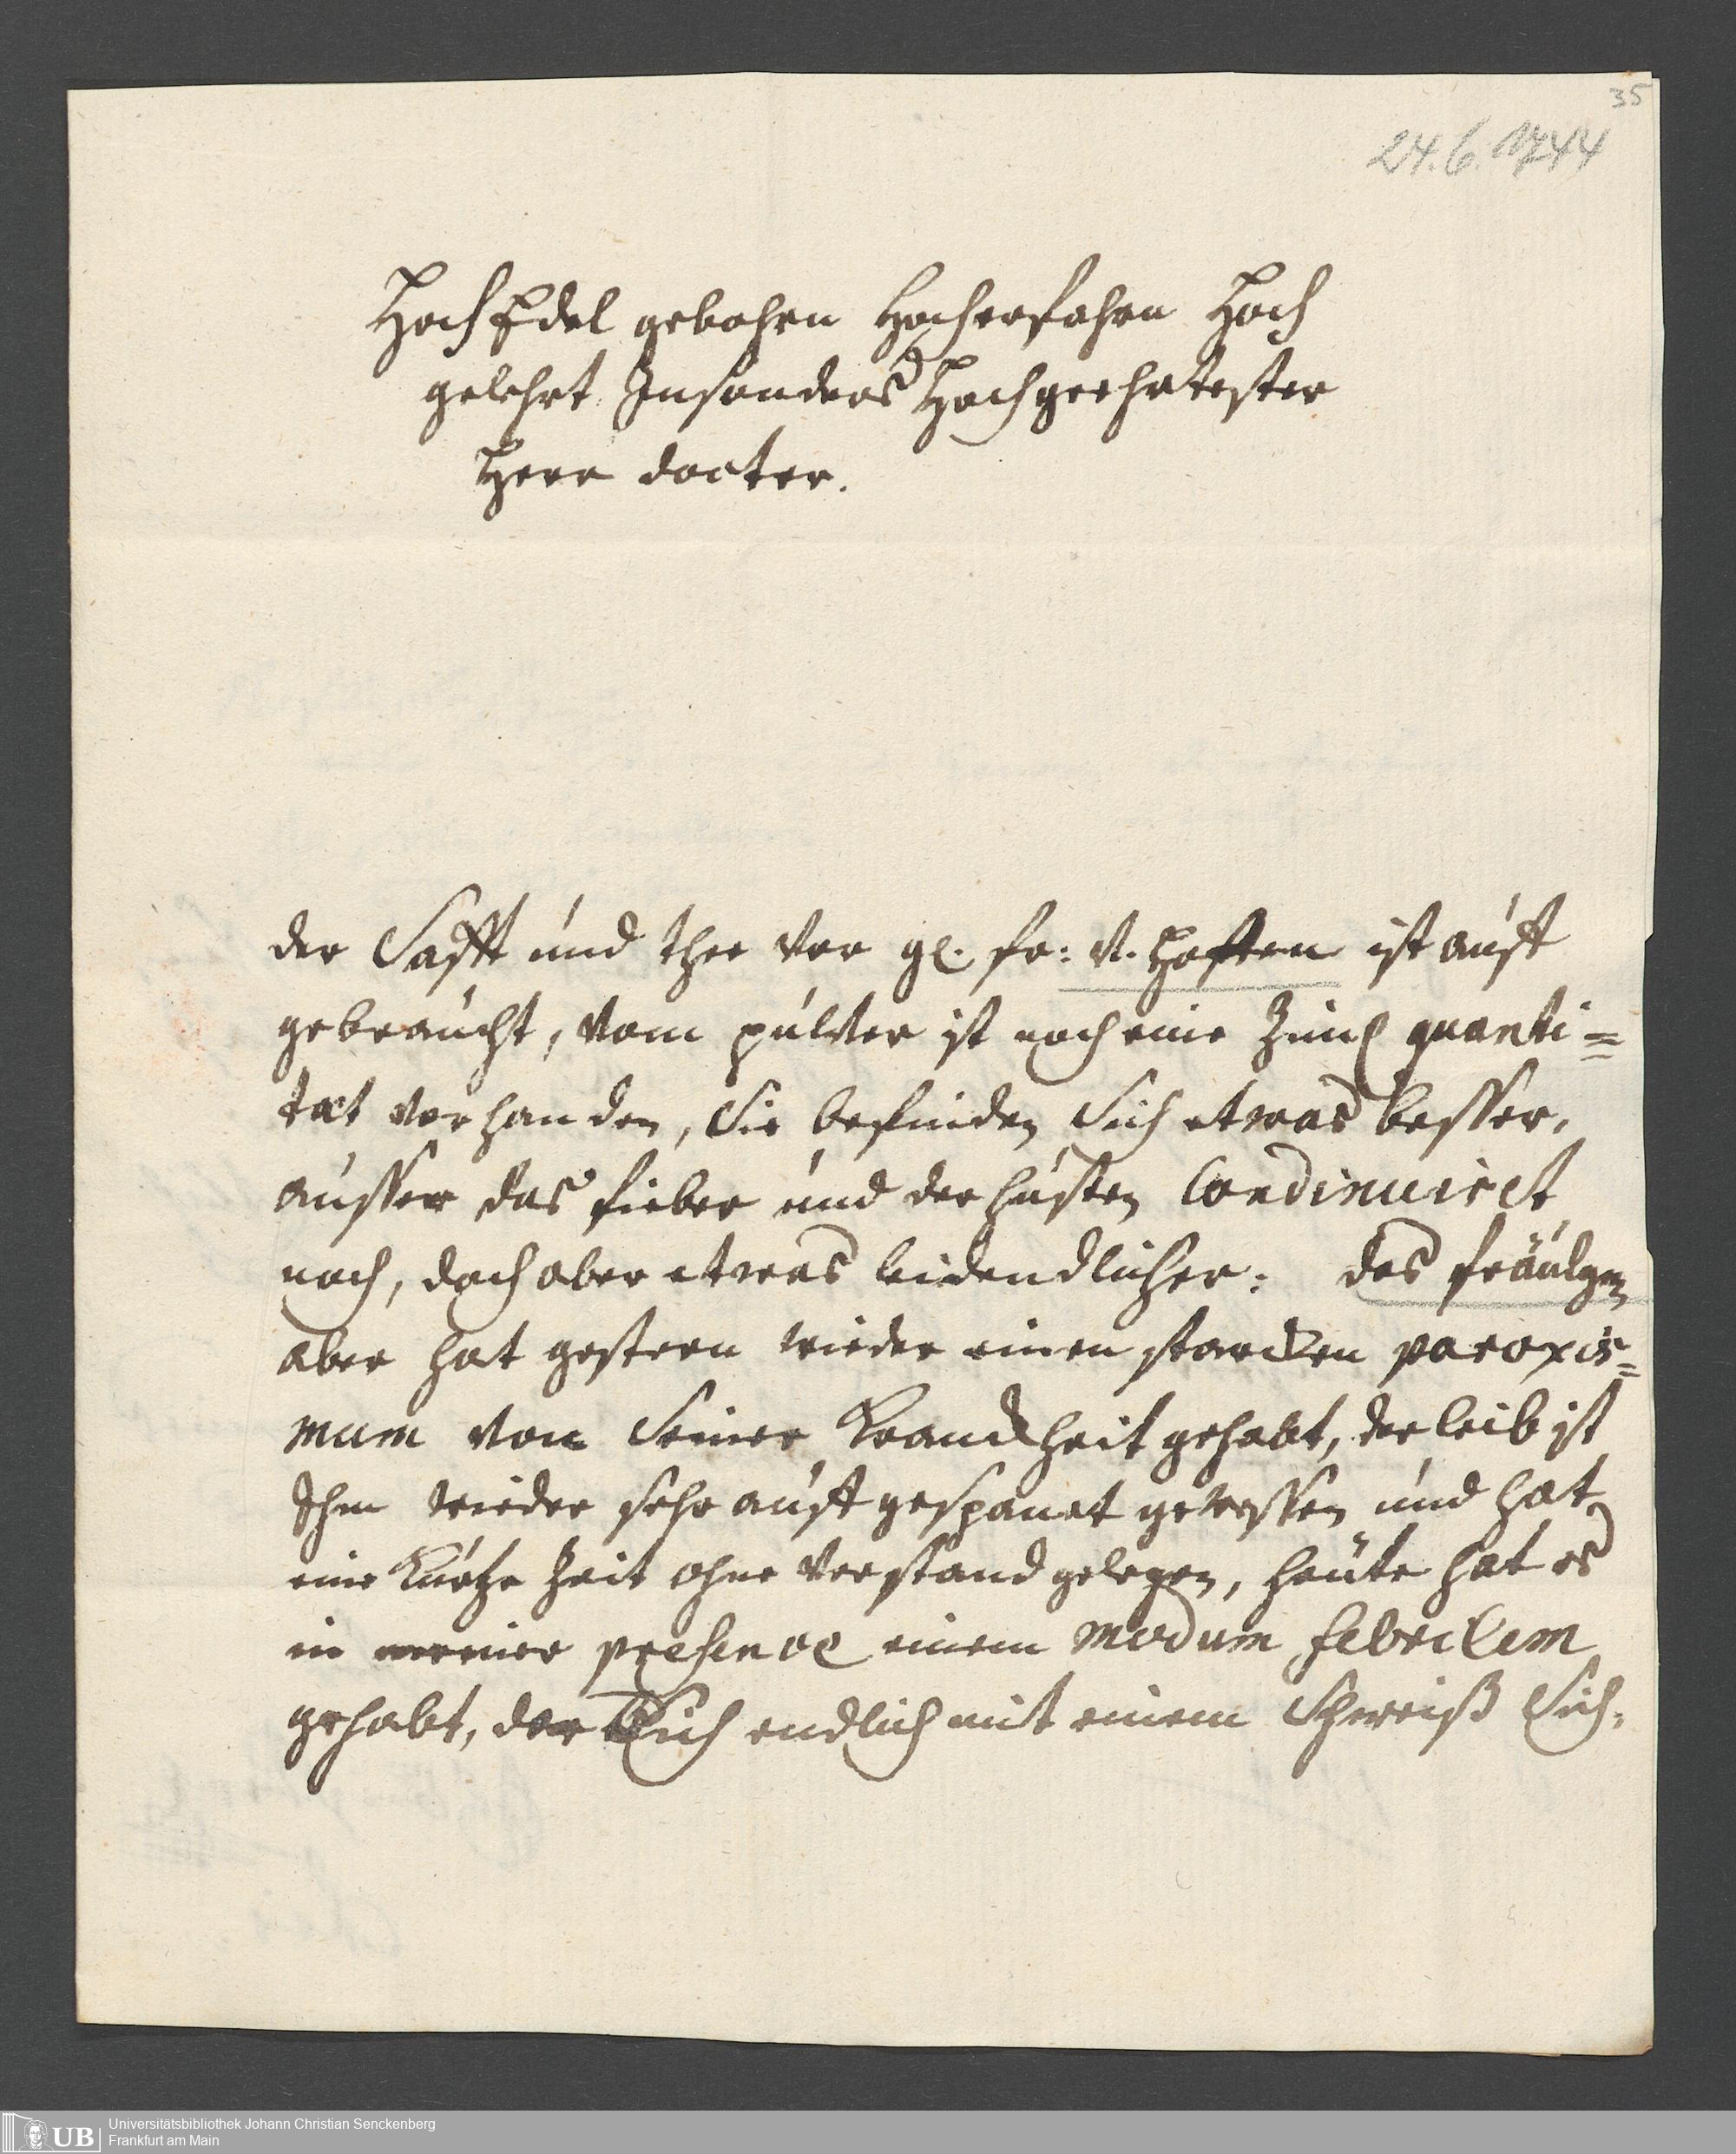 35
24.6.1744
HochEdel gebohrn Hocherfahrn Hoch
gelehrt Insonders Hochgeehrtester
Herr docter.
der Safft und thee vor gl. fr: v. Hafften ist auff
gebraucht, vom pulver ist noch eine Ziml quanti=
tæt vorhanden, Sie befinden Sich etwas besser,
ausser das fieber und der husten Condinuiret
noch, doch aber etwas leidendlicher: das fräulgen
aber hat gestern wieder einen starcken paroxis=
mum von Seiner Kranckheit gehabt, der leib ist
Ihm wieder sehr auffgespannt gewessen und hat
eine Kurtze Zeit ohne Verstand gelegen, heute hat es
in meiner presence einem modum febrilem
gehabt, der Sich endlich mit einem Schweiß Sich.
UB
Universitätsbibliothek Johann Christian Senckenberg
Frankfurt am Main